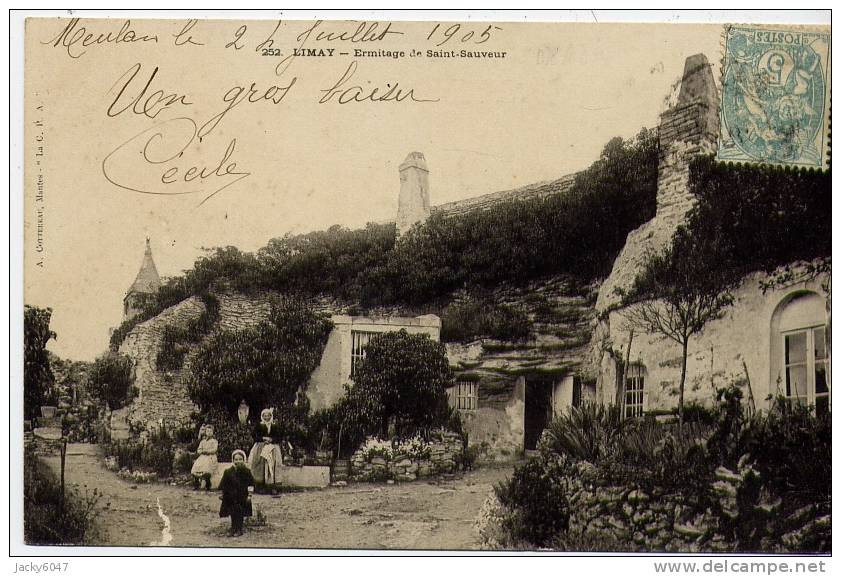 Meulan le 24 Juillet 1905
252. LIMAY — Ermitage de Saint-Sauveur
Un gros baiser
Cécile
A. COTTEREAU, Mantes - "La C. P. A."
POSTES
5
Jacky6047
http://www.delcampe.net